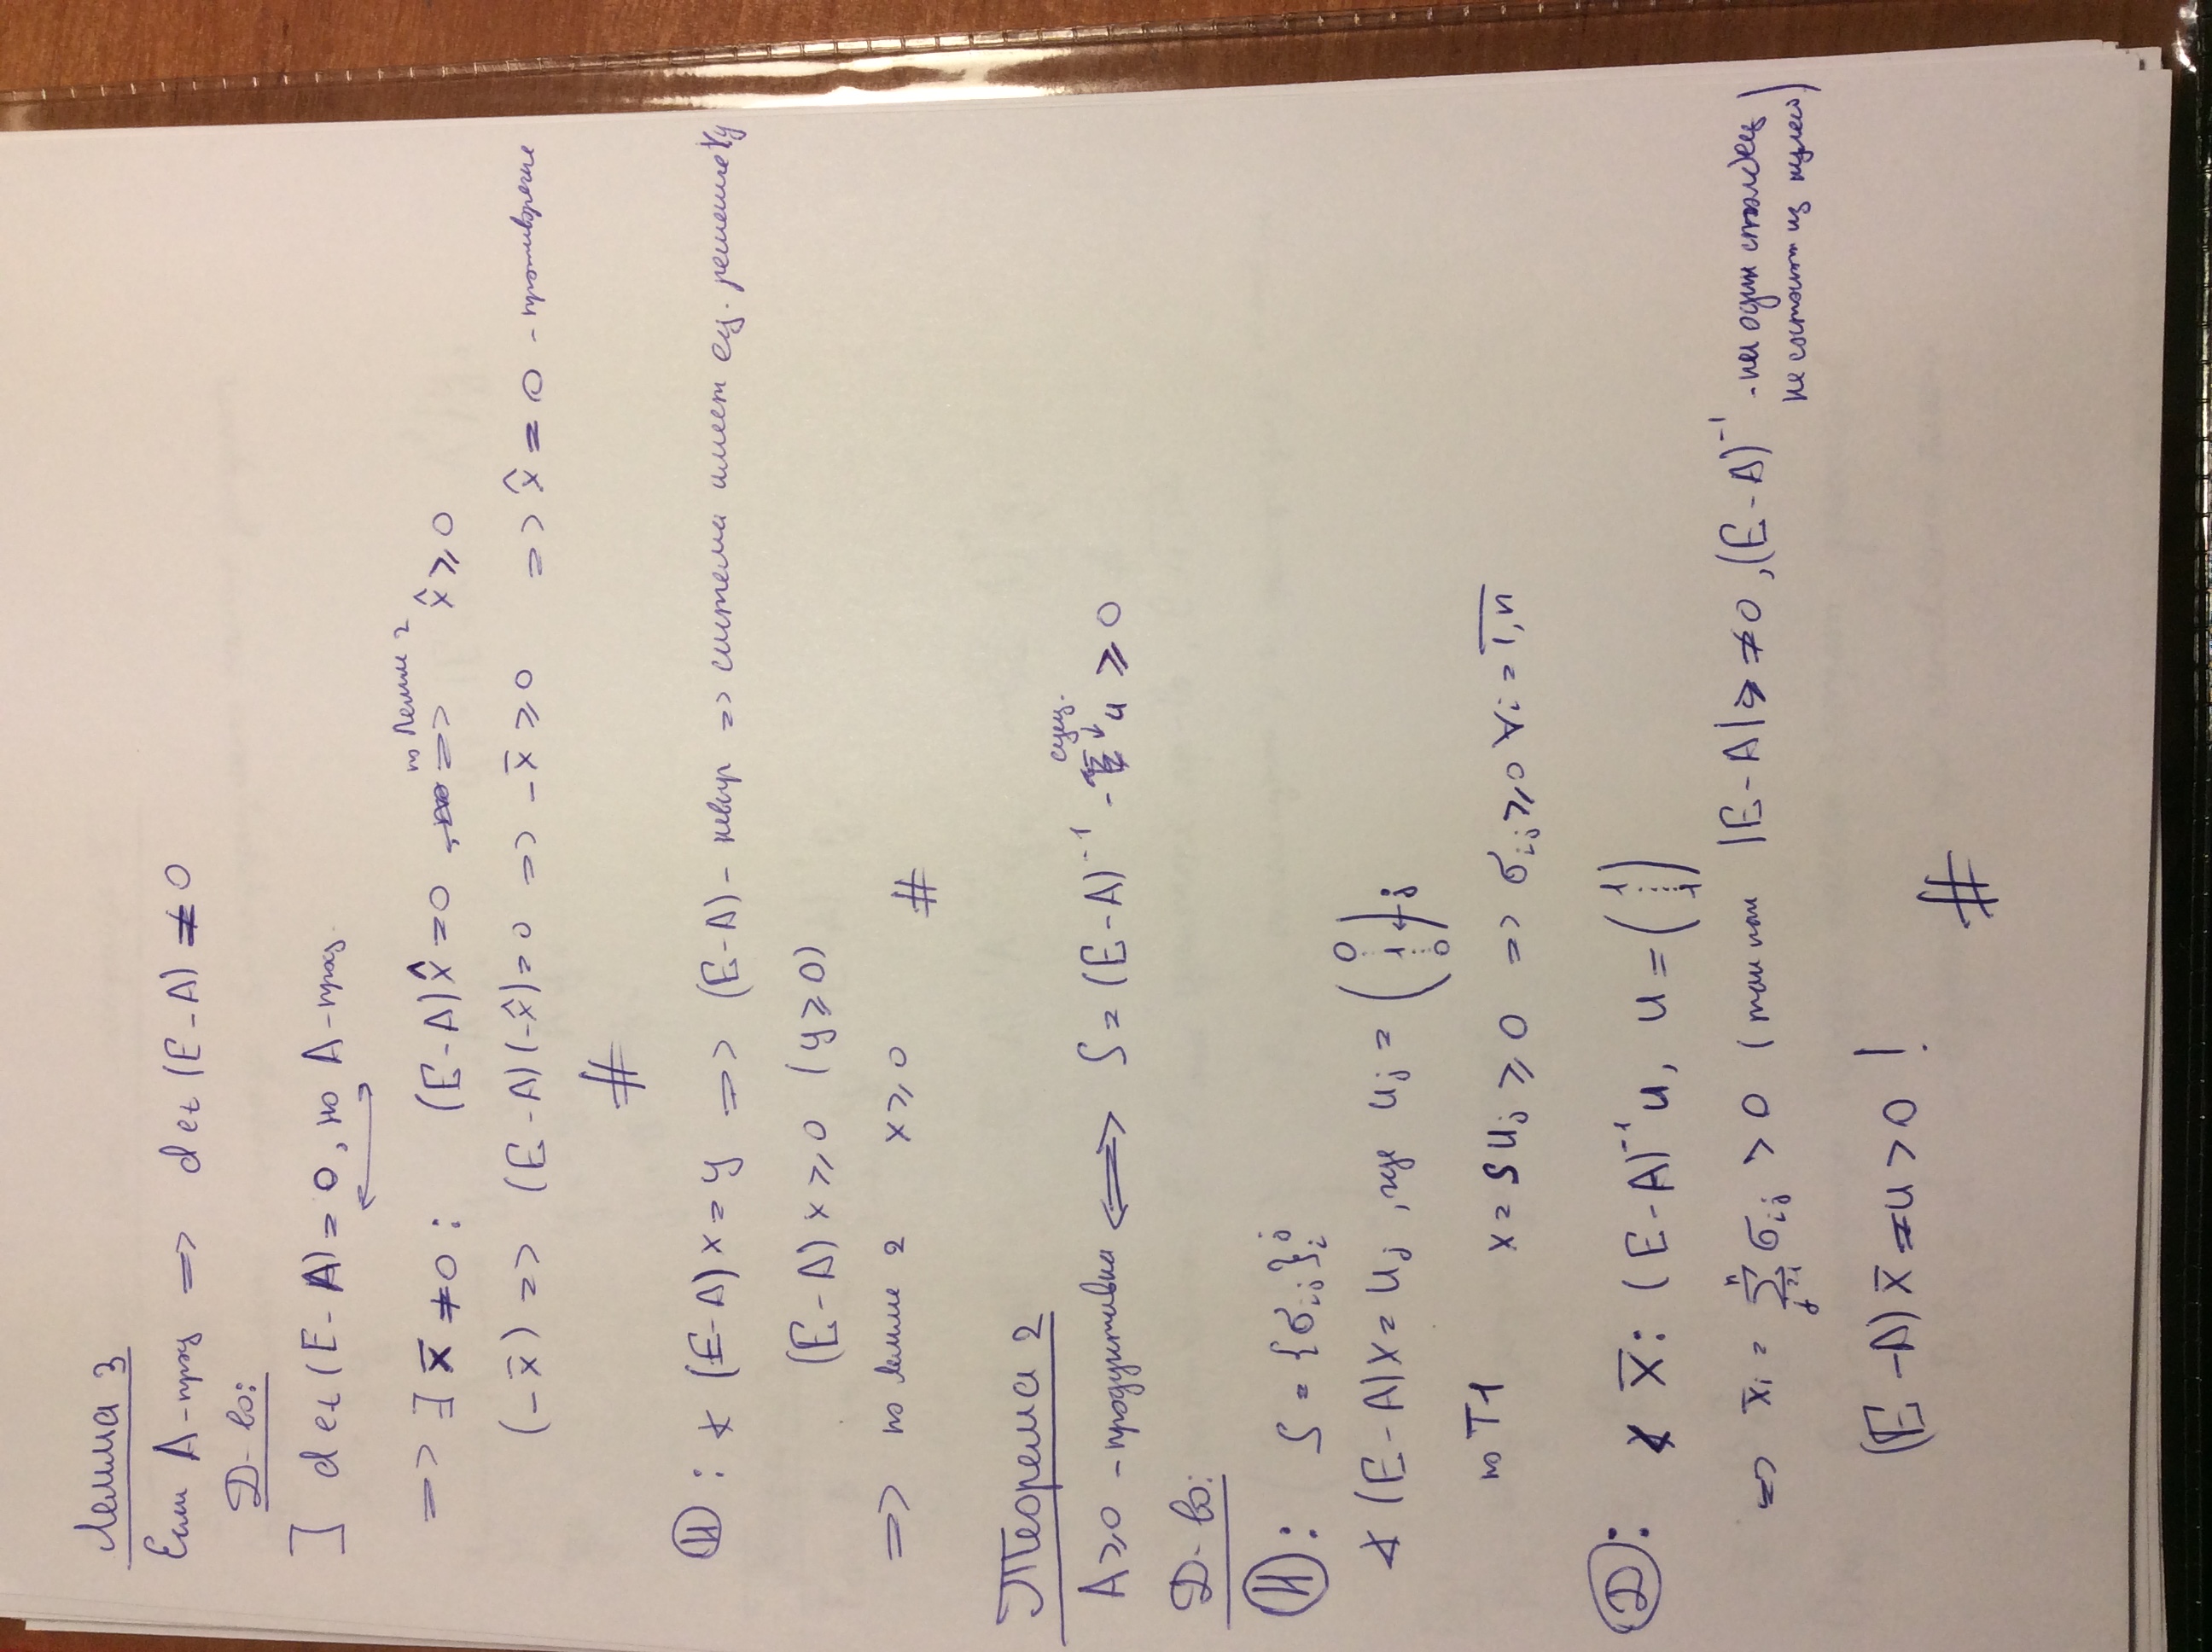 Лемма 3
Если A - прод => det (E - A) ≠ 0
Д-во:
] det (E - A) = 0, но A - прод.
=> ∃ x̄ ≠ 0 : (E - A) x̂ = 0 => по Лемме 2 x̂ ≥ 0
(- x̄) => (E - A) (- x̂) = 0 => - x̄ ≥ 0 => x̂ = 0 - противоречие
#
Ⓗ : ∢ (E - A) x = y => (E - A) - невыр => система имеет ед. решение ∀y
(E - A) x ≥ 0 (y ≥ 0)
=> по лемме 2 x ≥ 0 #
Теорема 2
A ≥ 0 - продуктивна <=> S = (E - A)⁻¹ - сущ. и ≥ 0
Д-во:
Ⓗ : S = {σᵢⱼ}ᵢʲ
∢ (E - A) x = uⱼ, где uⱼ = (0 ... 1 ... 0) ← j
по T1 x = S uⱼ ≥ 0 => σᵢⱼ ≥ 0 ∀i = 1,n
Ⓓ : ∢ x̄ : (E - A)⁻¹ u, u = (1 ... 1)
=> x̄ᵢ = Σⱼ₌₁ⁿ σᵢⱼ > 0 (так как |E - A| ≠ 0, (E - A)⁻¹ - ни один столбец
не состоит из нулей)
(E - A) x̄ = u > 0 !
#